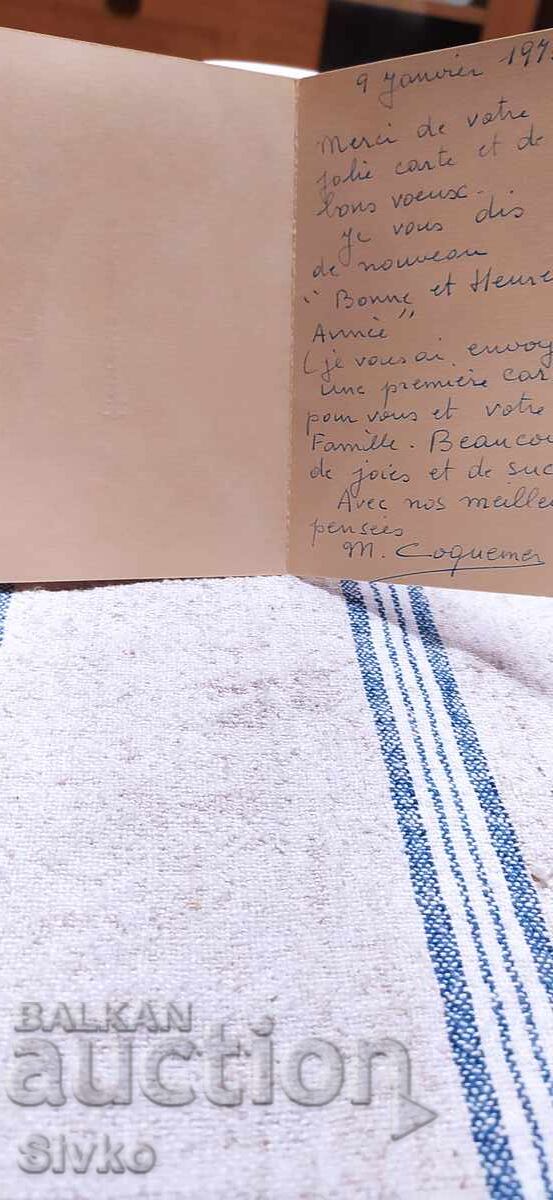 9 Janvier 197
Merci de votre
jolie carte et de
bons voeux.
Je vous dis
de nouveau
"Bonne et Heure
Année"
(je vous ai envoy
une première car
pour vous et votre
Famille. Beaucou
de joies et de suc
Avec nos meille
pensées
M. Coquemer
BALKAN
auction
Sivko